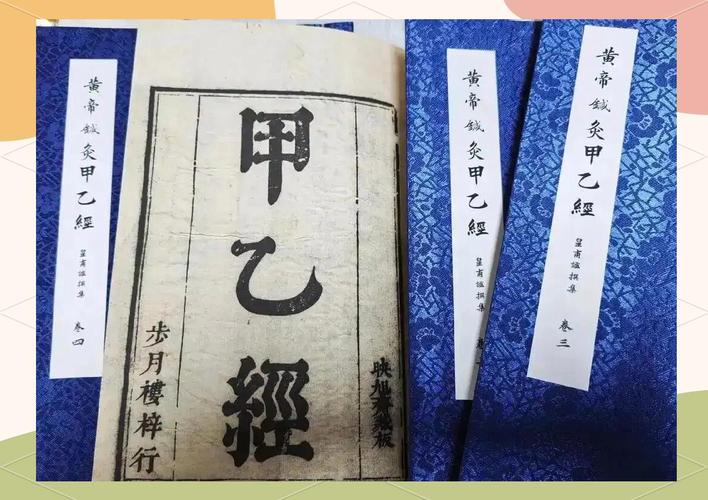 黃帝鍼灸甲乙經
皇甫謐撰集
卷三
黃帝鍼灸甲乙經
皇甫謐撰集
映旭齋藏板
甲乙經
步月樓梓行
黃帝鍼灸甲乙經
皇甫謐撰集
卷四